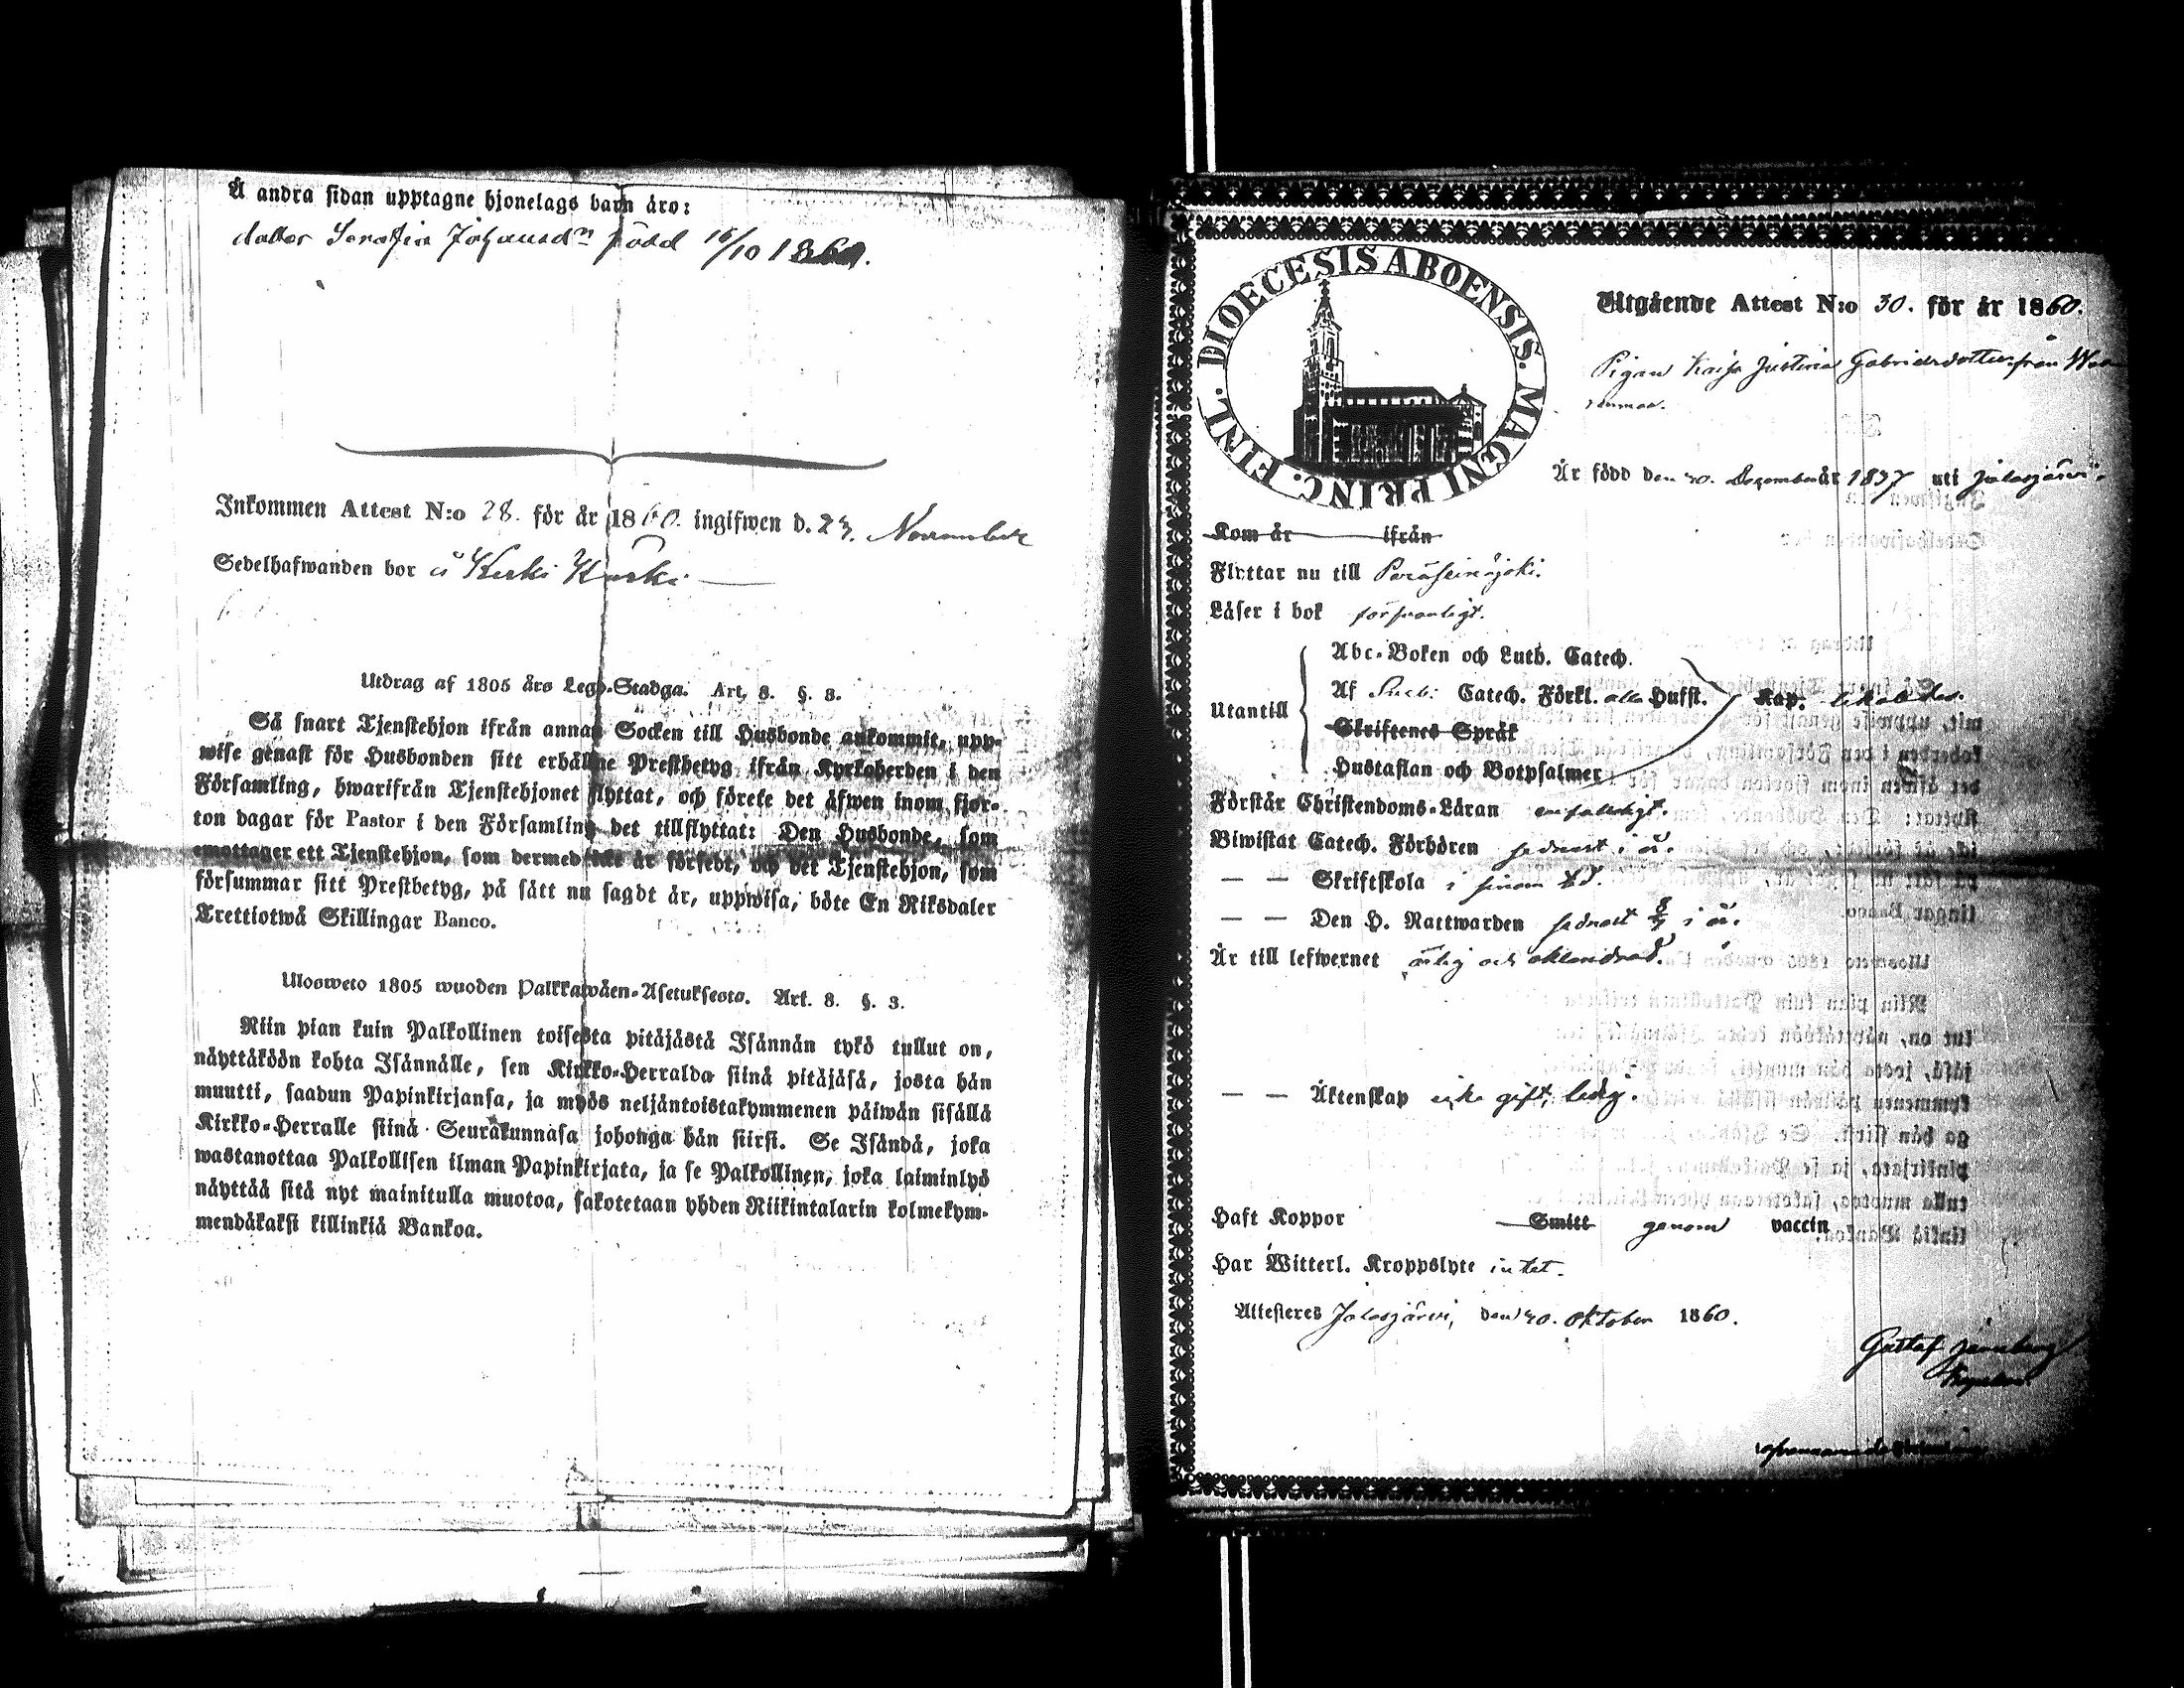 Å andra sidan upptagne hjonelags barn äro:
dotter Serafia Johansdr född 15/10 1860.
Inkommen Attest N:o 28. för år 1860. ingifwen d. 23. November
Sedelhafwanden bor å Kurki
Utdrag af 1805 års Lego-Stadga. Art. 8. §. 3.
Så snart Tjenstehjon ifrån annan Socken till Husbonde ankommit, upp-
wise genast för Husbonden sitt erhållne Prestbetyg ifrån Kyrkoherden i den
Församling, hwarifrån Tjenstehjonet flyttat, och förete det äfwen inom fjor-
ton dagar för Pastor i den Församling det tillflyttat: Den Husbonde, som
emottager ett Tjenstehjon, som dermed icke är försedt, och det Tjenstehjon, som
försummar sitt Prestbetyg, på sätt nu sagdt är, uppwisa, böte En Riksdaler
Trettiotwå Skillingar Banco.
Ulosweto 1805 wuoden Palkkawäen-Asetuksesta. Art. 8. §. 3.
Niin pian kuin Palkollinen toisesta pitäjästä Isännän tykö tullut on,
näyttäköön kohta Isännälle, sen Kirkko-Herralda siinä pitäjäsä, josta hän
muutti, saadun Papinkirjansa, ja myös neljäntoistakymmenen päiwän sisällä
Kirkko-Herralle siinä Seurakunnasa johonga hän siirsi. Se Isändä, joka
wastanottaa Palkollisen ilman Papinkirjata, ja se Palkollinen, joka laiminlyö
näyttää sitä nyt mainitulla muotoa, sakotetaan yhden Riikintalarin kolmekym-
mendäkaksi killinkiä Bankoa.
DIOECESIS ABOENSIS. MAGNI PRINC. FINL.
Utgående Attest N:o 30. för år 1860.
Pigan Kajsa Justina Gabrielsdotter från
Är född den 30. December år 1837 uti Jalasjärvi.
Kom år ifrån
Flyttar nu till Peräseinäjoki.
Läser i bok försvarligt.
Abc-Boken och Luth. Catech.
Af Catech. Förkl. alla Hufst. Kap. likaledes.
Utantill
Skriftenes Språk
Hustaflan och Botpsalmer
Förstår Christendoms-Läran enfaldigt.
Biwistat Catech. Förhören sednast i år.
— — Skriftskola i sinom tid.
— — Den H. Nattwarden sednast 8/7 i år.
Är till lefwernet ärlig och oklandrad.
— — Äktenskap icke gift, ledig.
Haft Koppor Smitt genom vaccin
Har Witterl. Kroppslyte intet.
Attesteras Jalasjärvi, den 30. Oktober 1860.
Gustaf